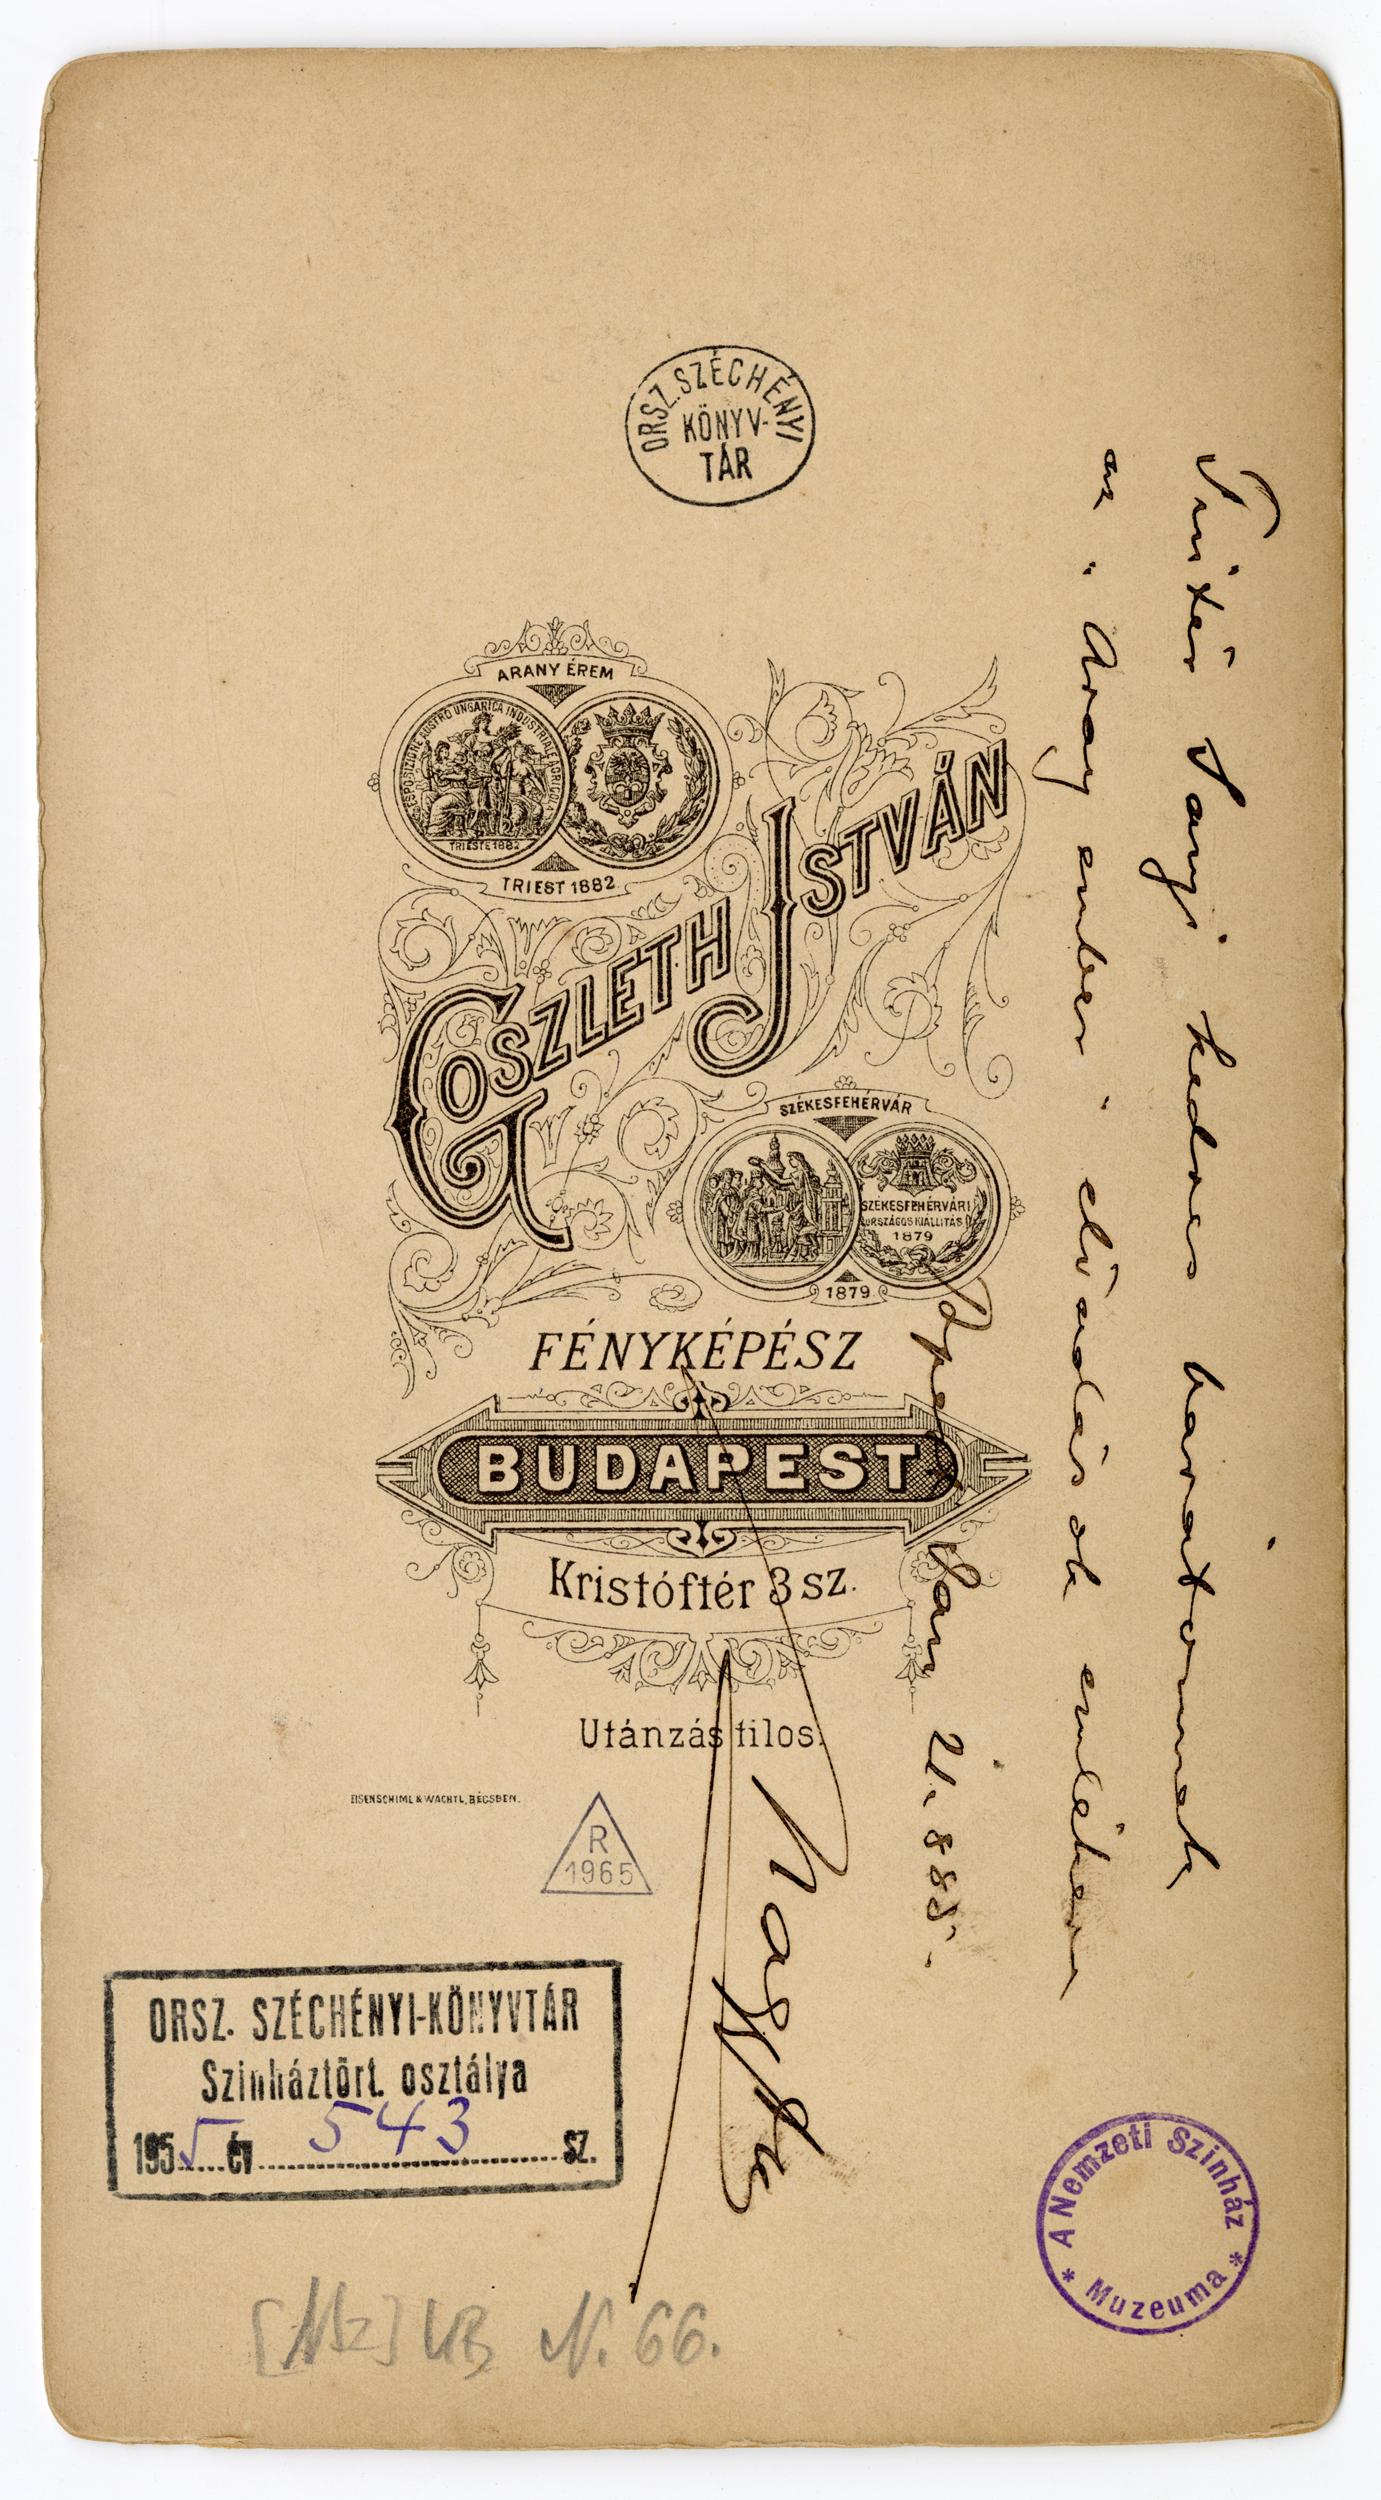 ORSZ. SZÉCHÉNYI
KÖNYV-
TÁR
ARANY ÉREM
ESPOSIZIONE AUSTRO UNGARICA INDUSTRIALE AGRICOLA
TRIESTE 1882
TRIEST 1882
GOSZLETH ISTVÁN
SZÉKESFEHÉRVÁR
SZÉKESFEHÉRVÁRI
ORSZÁGOS KIÁLLITÁS
1879
1879
FÉNYKÉPÉSZ
BUDAPEST
Kristóftér 3 sz.
Utánzás tilos.
EISENSCHIML & WACHTL, BÉCSBEN.
R
1965
kedves barátomnak
az „Arany ember" előadások emlékére
Bpest Jan 21. 885.
Nagy
ORSZ. SZÉCHÉNYI-KÖNYVTÁR
Szinháztört. osztálya
1955 év 543 sz.
A Nemzeti Szinház
* Muzeuma *
[NSz] VB N. 66.